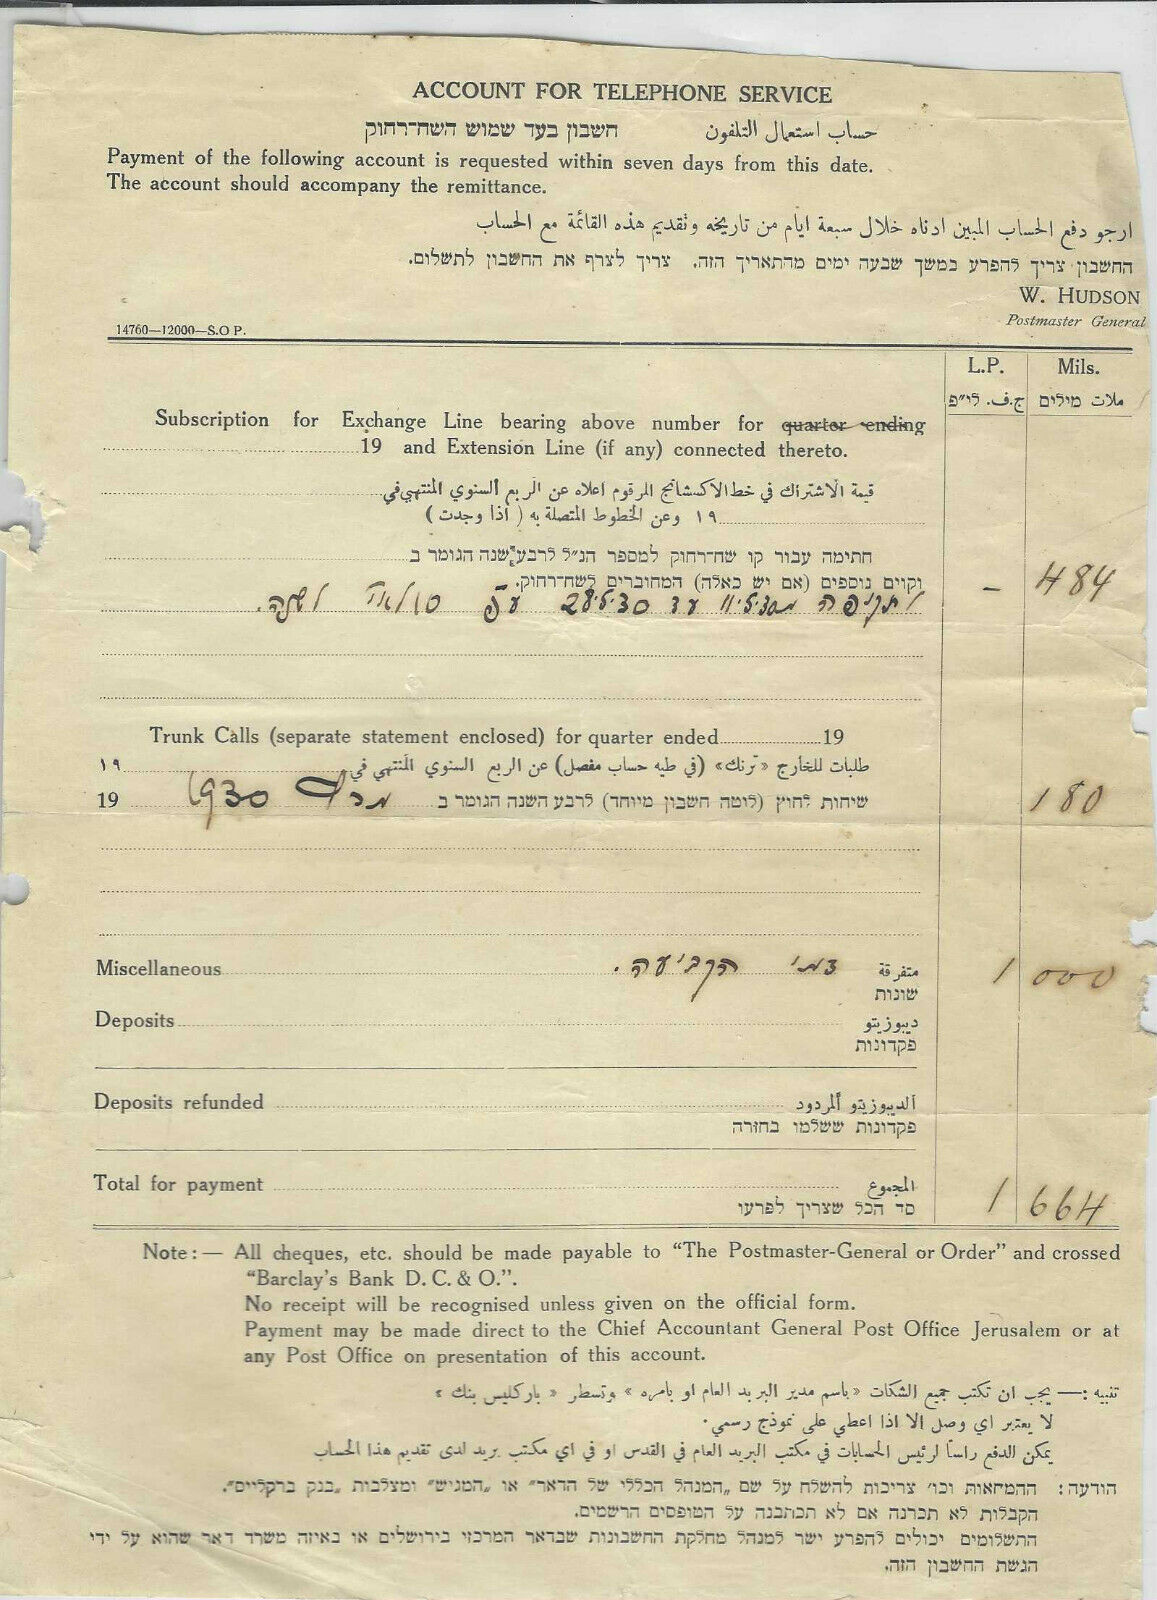 ACCOUNT FOR TELEPHONE SERVICE
חשבון בעד שמוש השח־רחוק حساب استعمال التلفون
Payment of the following account is requested within seven days from this date.
The account should accompany the remittance.
ارجو دفع الحساب المبين ادناه خلال سبعة ايام من تاريخه وتقديم هذه القائمة مع الحساب
החשבון צריך להפרע במשך שבעה ימים מהתאריך הזה. צריך לצרף את החשבון לתשלום.
W. HUDSON
Postmaster General
14760—12000—S.O P.
L.P. Mils.
ج.ف. לי"פ ملات מילים
Subscription for Exchange Line bearing above number for quarter ending
19 and Extension Line (if any) connected thereto.
قيمة الاشتراك في خط الاكسشانج المرقوم اعلاه عن الربع السنوي المنتهي في
١٩ وعن الخطوط المتصلة به ( اذا وجدت )
חתימה עבור קו שח־רחוק למספר הנ"ל לרבע שנה הגומר ב
וקוים נוספים (אם יש כאלה) המחוברים לשח־רחוק.
– 484
לתקופה עד לשנה.
Trunk Calls (separate statement enclosed) for quarter ended 19
طلبات للخارج «ترنك» (في طيه حساب مفصل) عن الربع السنوي المنتهي في ١٩
שיחות לחוץ (לוטה חשבון מיוחד) לרבע השנה הגומר ב 1930 19
180
Miscellaneous דמי הקביעה. متفرقة 1 000
שונות
Deposits ديبوزيتو
פקדונות
Deposits refunded الديبوزيتو المردود
פקדונות ששלמו בחזרה
Total for payment المجموع 1 664
סד הכל שצריך לפרעו
Note : — All cheques, etc. should be made payable to “The Postmaster-General or Order” and crossed
“Barclay's Bank D. C. & O.”.
No receipt will be recognised unless given on the official form.
Payment may be made direct to the Chief Accountant General Post Office Jerusalem or at
any Post Office on presentation of this account.
تنبيه :— يجب ان تكتب جميع الشكات «باسم مدير البريد العام او بامره» وتسطر «باركليس بنك»
لا يعتبر اي وصل الا اذا اعطي على نموذج رسمي.
يمكن الدفع راساً لرئيس الحسابات في مكتب البريد العام في القدس او في اي مكتب بريد لدى تقديم هذا الحساب
הודעה : ההמחאות וכו' צריכות להשלח על שם „המנהל הכללי של הדאר" או „המגיש" ומצלבות „בנק ברקלייס".
הקבלות לא תכרנה אם לא תכתבנה על הטופסים הרשמים.
התשלומים יכולים להפרע ישר למנהל מחלקת החשבונות שבדאר המרכזי בירושלים או באיזה משרד דאר שהוא על ידי
הגשת החשבון הזה.